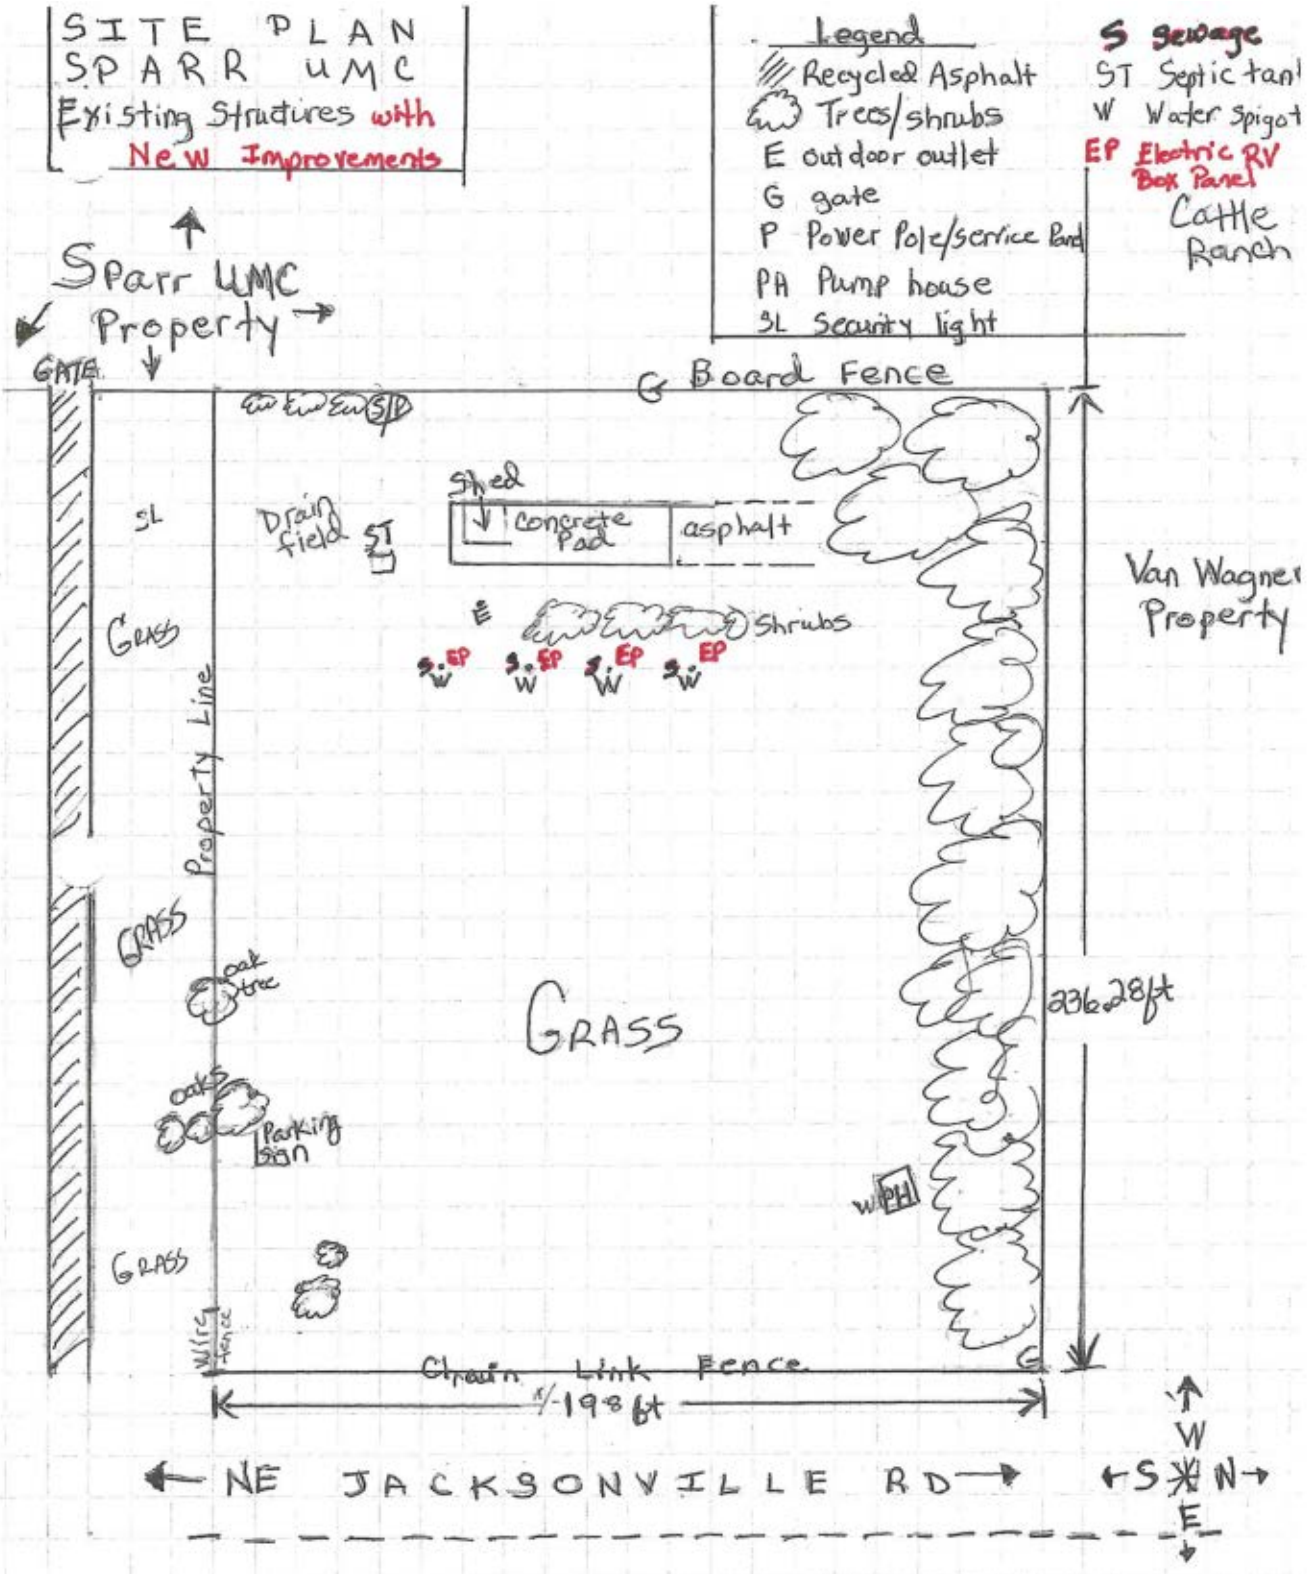 SITE PLAN
SPARR UMC
Existing Structures with
New Improvements
Legend
Recycled Asphalt
Trees/shrubs
E outdoor outlet
G gate
P Power Pole/service Panel
PA Pump house
SL Security light
S Sewage
ST Septic tank
W Water Spigot
EP Electric RV
Box Panel
Cattle
Ranch
Sparr UMC
Property
GATE
G Board Fence
S/P
Shed
Concrete
Pad
asphalt
SL
Drain
field
ST
E
Shrubs
GRASS
S. EP
W
S. EP
W
S. EP
W
S. EP
W
Van Wagner
Property
Property Line
GRASS
oak
tree
GRASS
236.28ft
oaks
Parking
sign
W PH
GRASS
Wire
fence
Chain Link Fence
G
+/-198 ft
NE JACKSONVILLE RD
W
S N
E